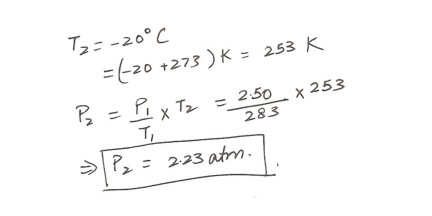 T₂ = -20° C
= (-20 + 273) K = 253 K
P₂ = P₁/T₁ × T₂ = 2.50/283 × 253
⇒ P₂ = 2.23 atm.